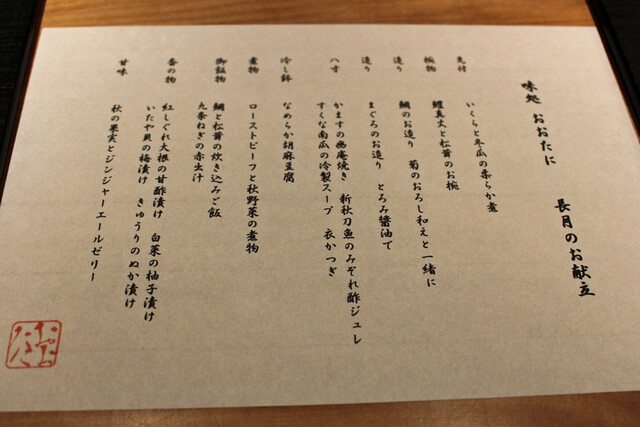 味処 おおたに 長月のお献立
先付
いくらと冬瓜の柔らか煮
椀物
鱧真丈と松茸のお椀
造り
鯛のお造り 菊のおろし和えと一緒に
造り
まぐろのお造り とろみ醤油で
八寸
かますの幽庵焼き 新秋刀魚のみぞれ酢ジュレ
すくな南瓜の冷製スープ 衣かつぎ
冷し鉢
なめらか胡麻豆腐
煮物
ローストビーフと秋野菜の煮物
御飯物
鯛と松茸の炊き込みご飯
九条ねぎの赤出汁
香の物
紅しぐれ大根の甘酢漬け 白菜の柚子漬け
いたや貝の梅漬け きゅうりのぬか漬け
甘味
秋の果実とジンジャーエールゼリー